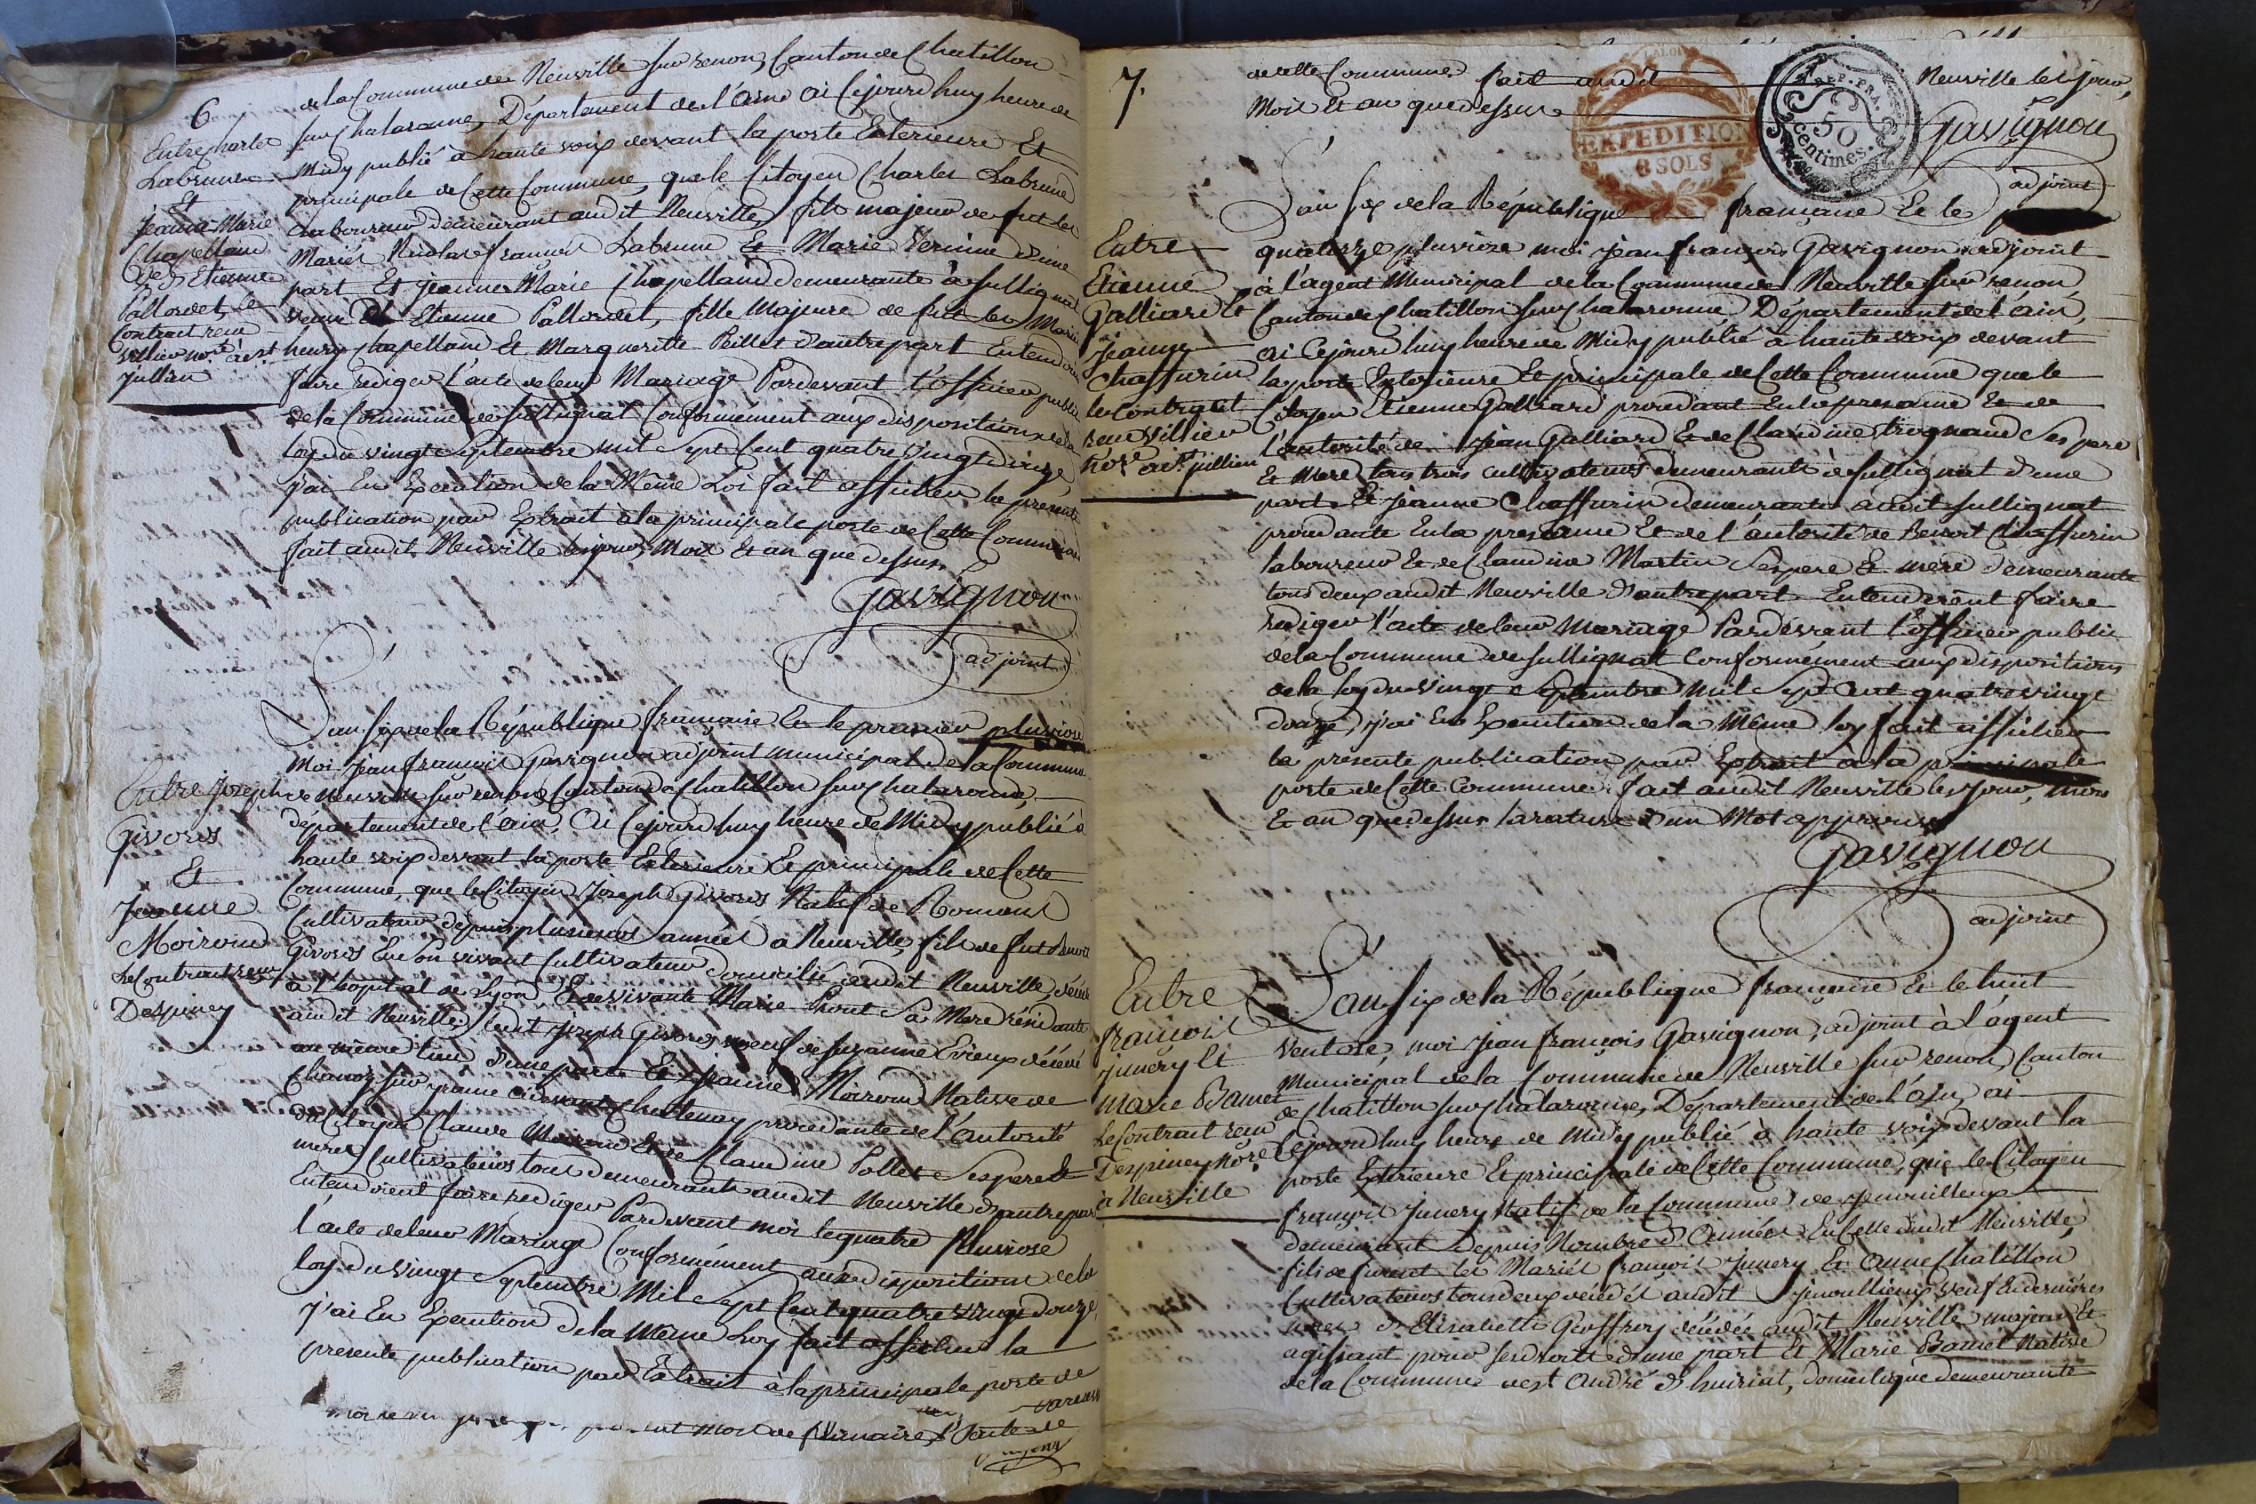 6
Entre charles
Labrune
Et
Jeanne Marie
Chapelland
Ve d'Etienne
Pallordet, le
Contrait recu
villier nore à st
jullien
de la Commune de Neuville sur renon, Canton de Chatillon
sur chalaronne, Département de l'Aine ai Cejourd'huy heure de
Midy publié à haute voix devant la porte Exterieure Et
principale de Cette Commune, que le Citoyen Charles Labrune
Laboureur demeurant audit Neuville, fils majeur de fut les
Mariés Nicolas françois Labrune Et Marie d'une
part Et Jeanne Marie Chapelland demeurante à sullignat
veuve d'Etienne Pallordet, fille Majeure de fut les Mariés
henry Chapelland Et Margueritte Billet d'autrepart Entend
faire rediger l'acte de leur Mariage Pardevant l'officier public
de la Commune de sullignat Conformement aux dispositions de la
loy du vingt septembre mil sept Cent quatre vingt douze
j'ai En Execution de la Même Loi fait afficher la présente
publication par Extrait à la principale porte de Cette Commune
fait audit Neuville les jour, Mois Et an que dessus
Gavignon
adjoint
Entre Joseph
Givors
Et
Jeanne
Moiroud
Le Contrait recu
Despiney
L'an six de la République française Et le premier pluviose
Moi Jean françois Gavignon adjoint municipal de la Commune
de Neuville sur renon, Canton de Chatillon sur chalaronne,
département de l'ain, Ai Cejourd'huy heure de Midy publié à
haute voix devant la porte Exterieure Et principale de Cette
Commune, que le Citoyen Joseph Givors Natif de Romans
Cultivateur depuis plusieurs années à Neuville, fils de fut Benoit
Givors En son vivant Cultivateur domicilié audit Neuville, décédé
à l'hopital de Lyon, Et de vivante Marie sa Mere résidante
audit Neuville, ledit Joseph Givors veuf de suzanne Evieux décédé
au même lieu d'une part Et Jeanne Moiroud Native de
Chanoz sur yrance cidevant Chattenay procedante de l'autorité
du Citoyen Claude Moiroud Et de Claudine Pollet ses pere Et
mere Cultivateurs tous demeurants audit Neuville d'autrepart
Entendoient faire rediger Pardevant moi le quatre Pluviose
l'acte de leur Mariage Conformément aux dispositions de la
loy du vingt septembre Mil sept Cent quatre vingt douze,
j'ai En Execution de la Même Loy fait afficher la
presente publication par Extrait à la principale porte de
7.
de cette Commune fait audit Neuville les jour,
Mois Et an que dessus
Gavignon
adjoint
EXPEDITION
8 SOLS
REP. FRA.
50
centimes.
Entre
Etienne
Galliard Et
Jeanne
Chaffurin
le Contrait
recu villier
nore à st jullien
L'an six de la République française Et le
quatorze pluviose moi Jean françois Gavignon adjoint
à l'agent Municipal de la Commune de Neuville sur renon
Canton de Chatillon sur Chalaronne Département de l'ain,
ai Cejourd'huy heure de Midy publié à haute voix devant
la porte Exterieure Et principale de Cette Commune que le
Citoyen Etienne Galliard procedant En la presence Et de
l'autorité de Jean Galliard Et de Claudine trognaud ses pere
Et Mere tous trois cultivateurs demeurants à sullignat d'une
part Et Jeanne Chaffurin demeurante audit sullignat
procedante En la presence Et de l'autorité de Benoit Chaffurin
laboureur Et de Claudine Martin ses pere Et mere demeurants
tous deux audit Neuville d'autrepart Entenderent faire
rediger l'acte de leur Mariage Pardevant l'officier public
de la Commune de Sullignat Conformément aux dispositions
de la loy du vingt septembre mil sept cent quatre vingt
douze, j'ai En Execution de la Même loy fait afficher
la presente publication par Extrait à la principale
porte de Cette Commune fait audit Neuville les jour, mois
Et an que dessus la rature d'un Mot approuvé
Gavignon
adjoint
Entre
françois
junery Et
Marie Bamet
Le Contrait recu
Despiney nore
à Neuville
L'an six de la République françaine Et le huit
ventose, moi Jean françois Gavignon, adjoint à l'agent
Municipal de la Commune de Neuville sur renon, Canton
de Chatillon sur chalaronne, Département de l'ain, ai
Cejourd'huy heure de Midy publié à haute voix devant la
porte Extérieure Et principale de Cette Commune, que le Citoyen
françois Junery Natif de la Commune de
demeurant depuis Nombre d'Années En Cette dudit Neuville,
fils de furent les Mariés françois Junery Et Anne Chatillon
Cultivateurs tous deux décédés audit veuf En dernieres
d'Elisabette Geoffrey décédée audit Neuville majeur Et
agissant pour ses droits d'une part Et Marie Bamet Native
de la Commune de st André d'huiriat, domestique demeurante